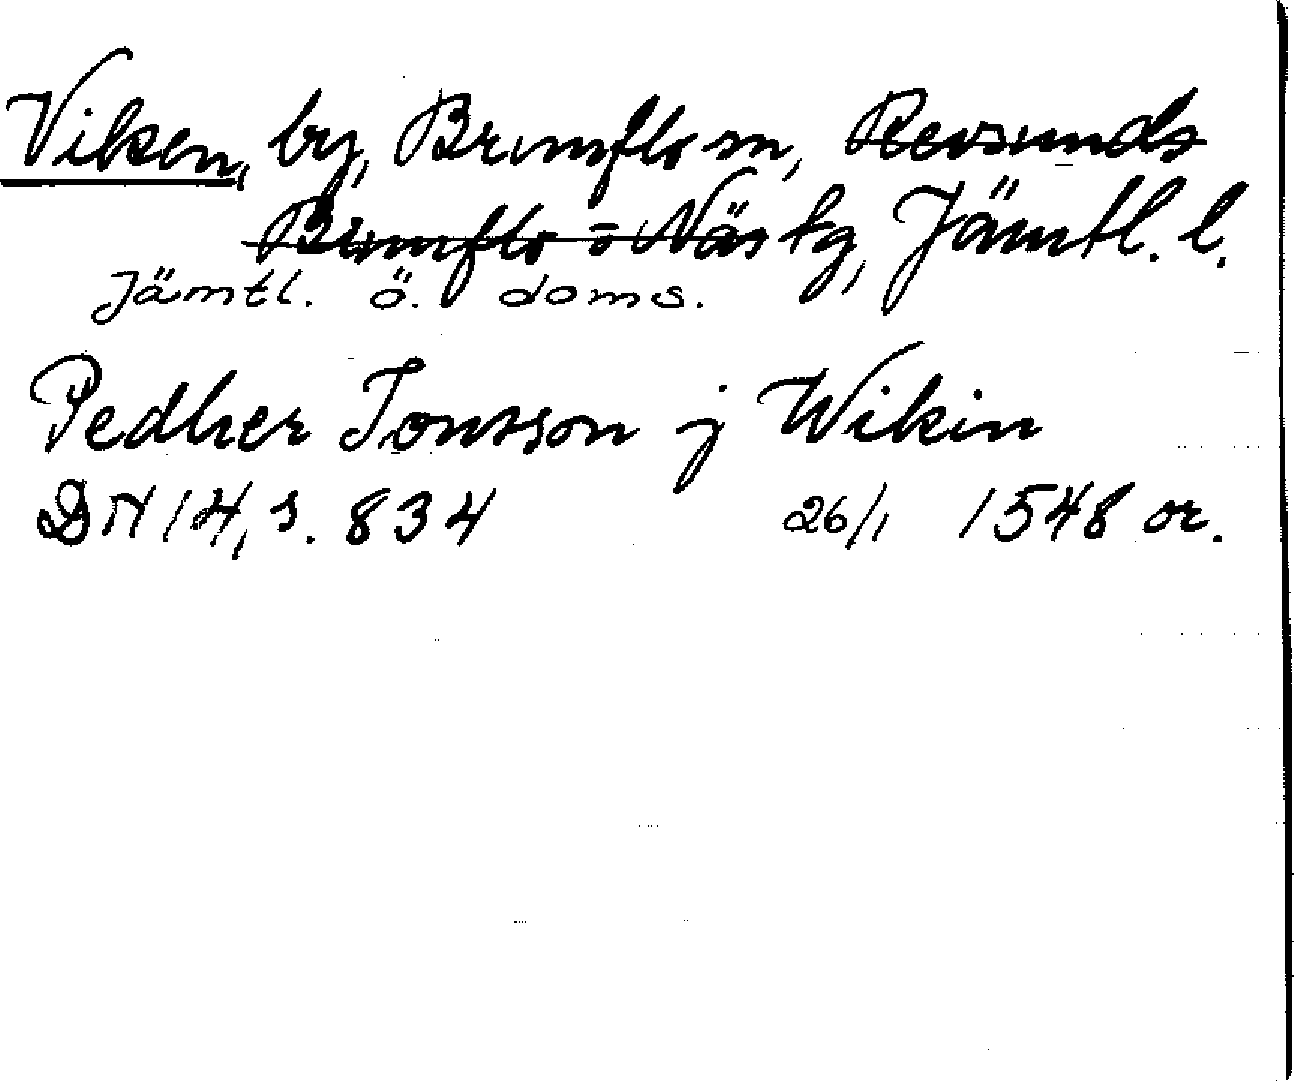 Viken, by, Brunflo sn, Revsunds
Brunflo = Näs tg, Jämtl. l.
Jämtl. ö. doms.
Pedher Jonsson j Wikin
DN 14, s. 834 26/1 1548 or.